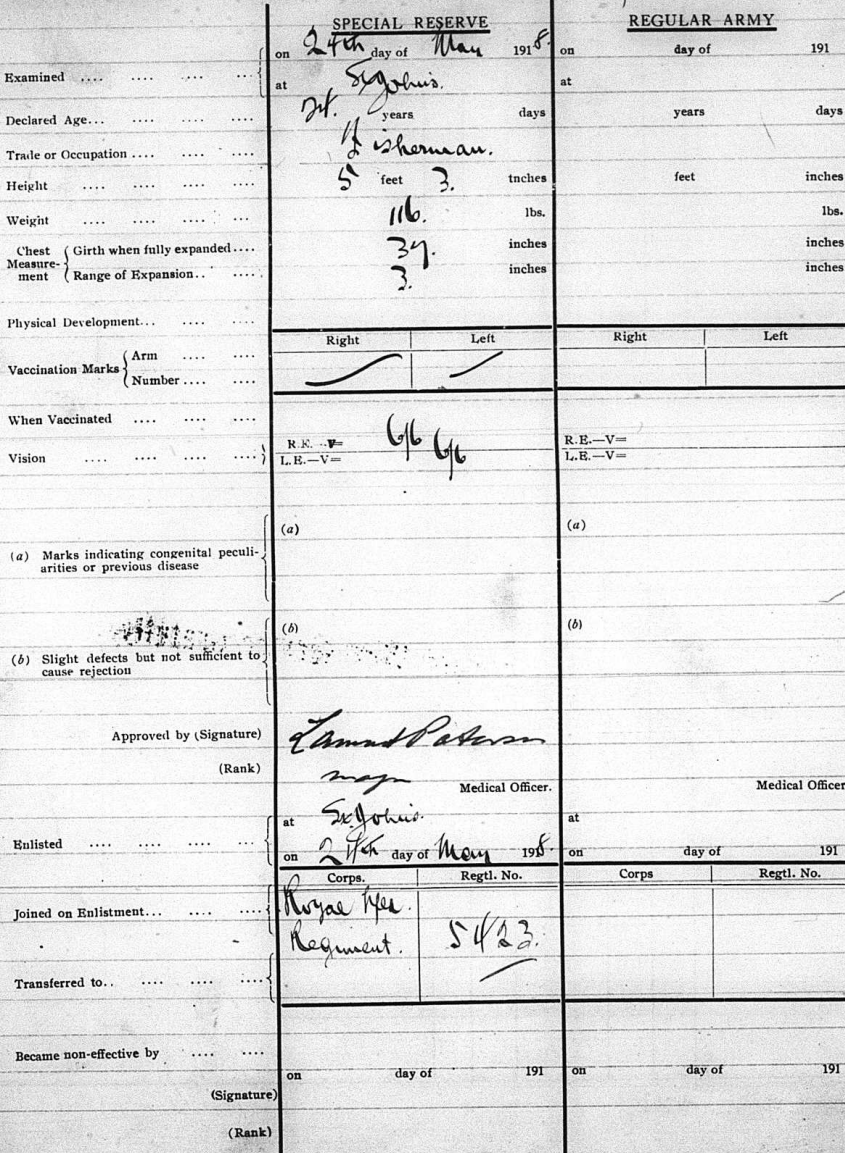 SPECIAL RESERVE REGULAR ARMY
Examined .... .... .... .... on 24th day of May 1918. on day of 191
at St John's. at
Declared Age... .... .... .... years days years days
Trade or Occupation .... .... .... Fisherman.
Height .... .... .... .... 5 feet 3. inches feet inches
Weight .... .... .... ... 116. lbs. lbs.
Chest Measure-ment Girth when fully expanded .... 37. inches inches
Range of Expansion.. .... 3. inches inches
Physical Development... .... ....
Right Left Right Left
Vaccination Marks Arm .... ....
Number .... ....
When Vaccinated .... .... ....
Vision .... .... .... .... R.E.—V= 6/6 R.E.—V=
L.E.—V= 6/6 L.E.—V=
(a) Marks indicating congenital peculi-arities or previous disease (a) (a)
(b) Slight defects but not sufficient to cause rejection (b) (b)
Approved by (Signature) Paterson
(Rank) Major
Medical Officer. Medical Officer
Enlisted .... .... .... ... at St John's. at
on 24th day of May 1918. on day of 191
Corps. Regtl. No. Corps Regtl. No.
Joined on Enlistment... .... .... Royal Nfld
Regiment. 5423.
Transferred to.. .... .... ....
Became non-effective by .... ....
on day of 191 on day of 191
(Signature)
(Rank)